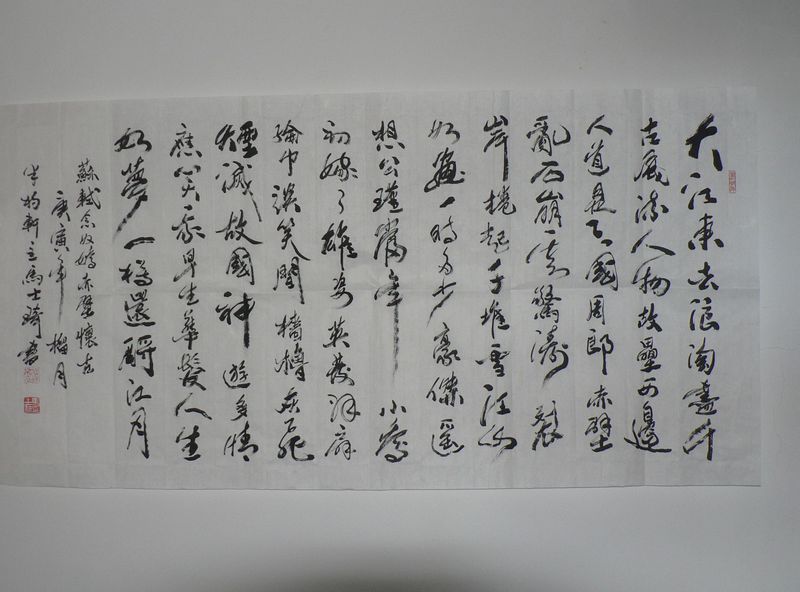 大江東去浪淘盡千
古風流人物故壘西邊
人道是三國周郎赤壁
亂石崩雲驚濤裂
岸捲起千堆雪江山
如畫一時多少豪傑遥
想公瑾當年小喬
初嫁了雄姿英發羽扇
綸巾談笑間檣櫓灰飛
煙滅故國神遊多情
應笑我早生華髮人生
如夢一樽還酹江月
蘇軾念奴嬌赤壁懷古
庚寅年榴月
軒主馬士琦書